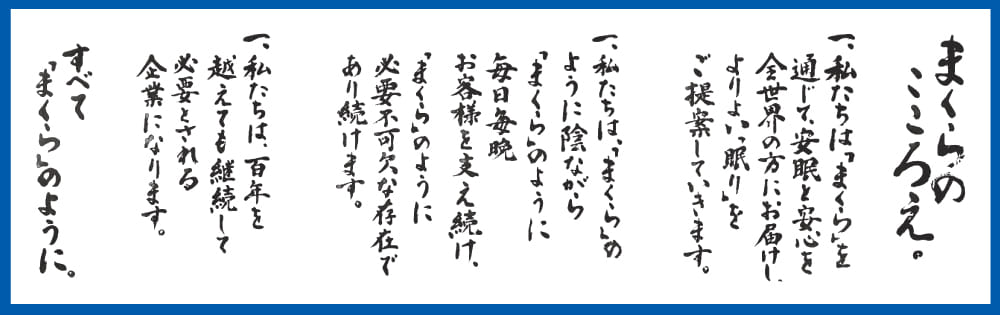 まくらの
こころえ。
一、私たちは「まくら」を
通じて、安眠と安心を
全世界の方にお届けし、
よりよい「眠り」を
ご提案していきます。
一、私たちは、「まくら」の
ように陰ながら
「まくら」のように
毎日毎晩
お客様を支え続け、
「まくら」のように
必要不可欠な存在で
あり続けます。
一、私たちは、百年を
越えても継続して
必要とされる
企業になります。
すべて
「まくら」のように。